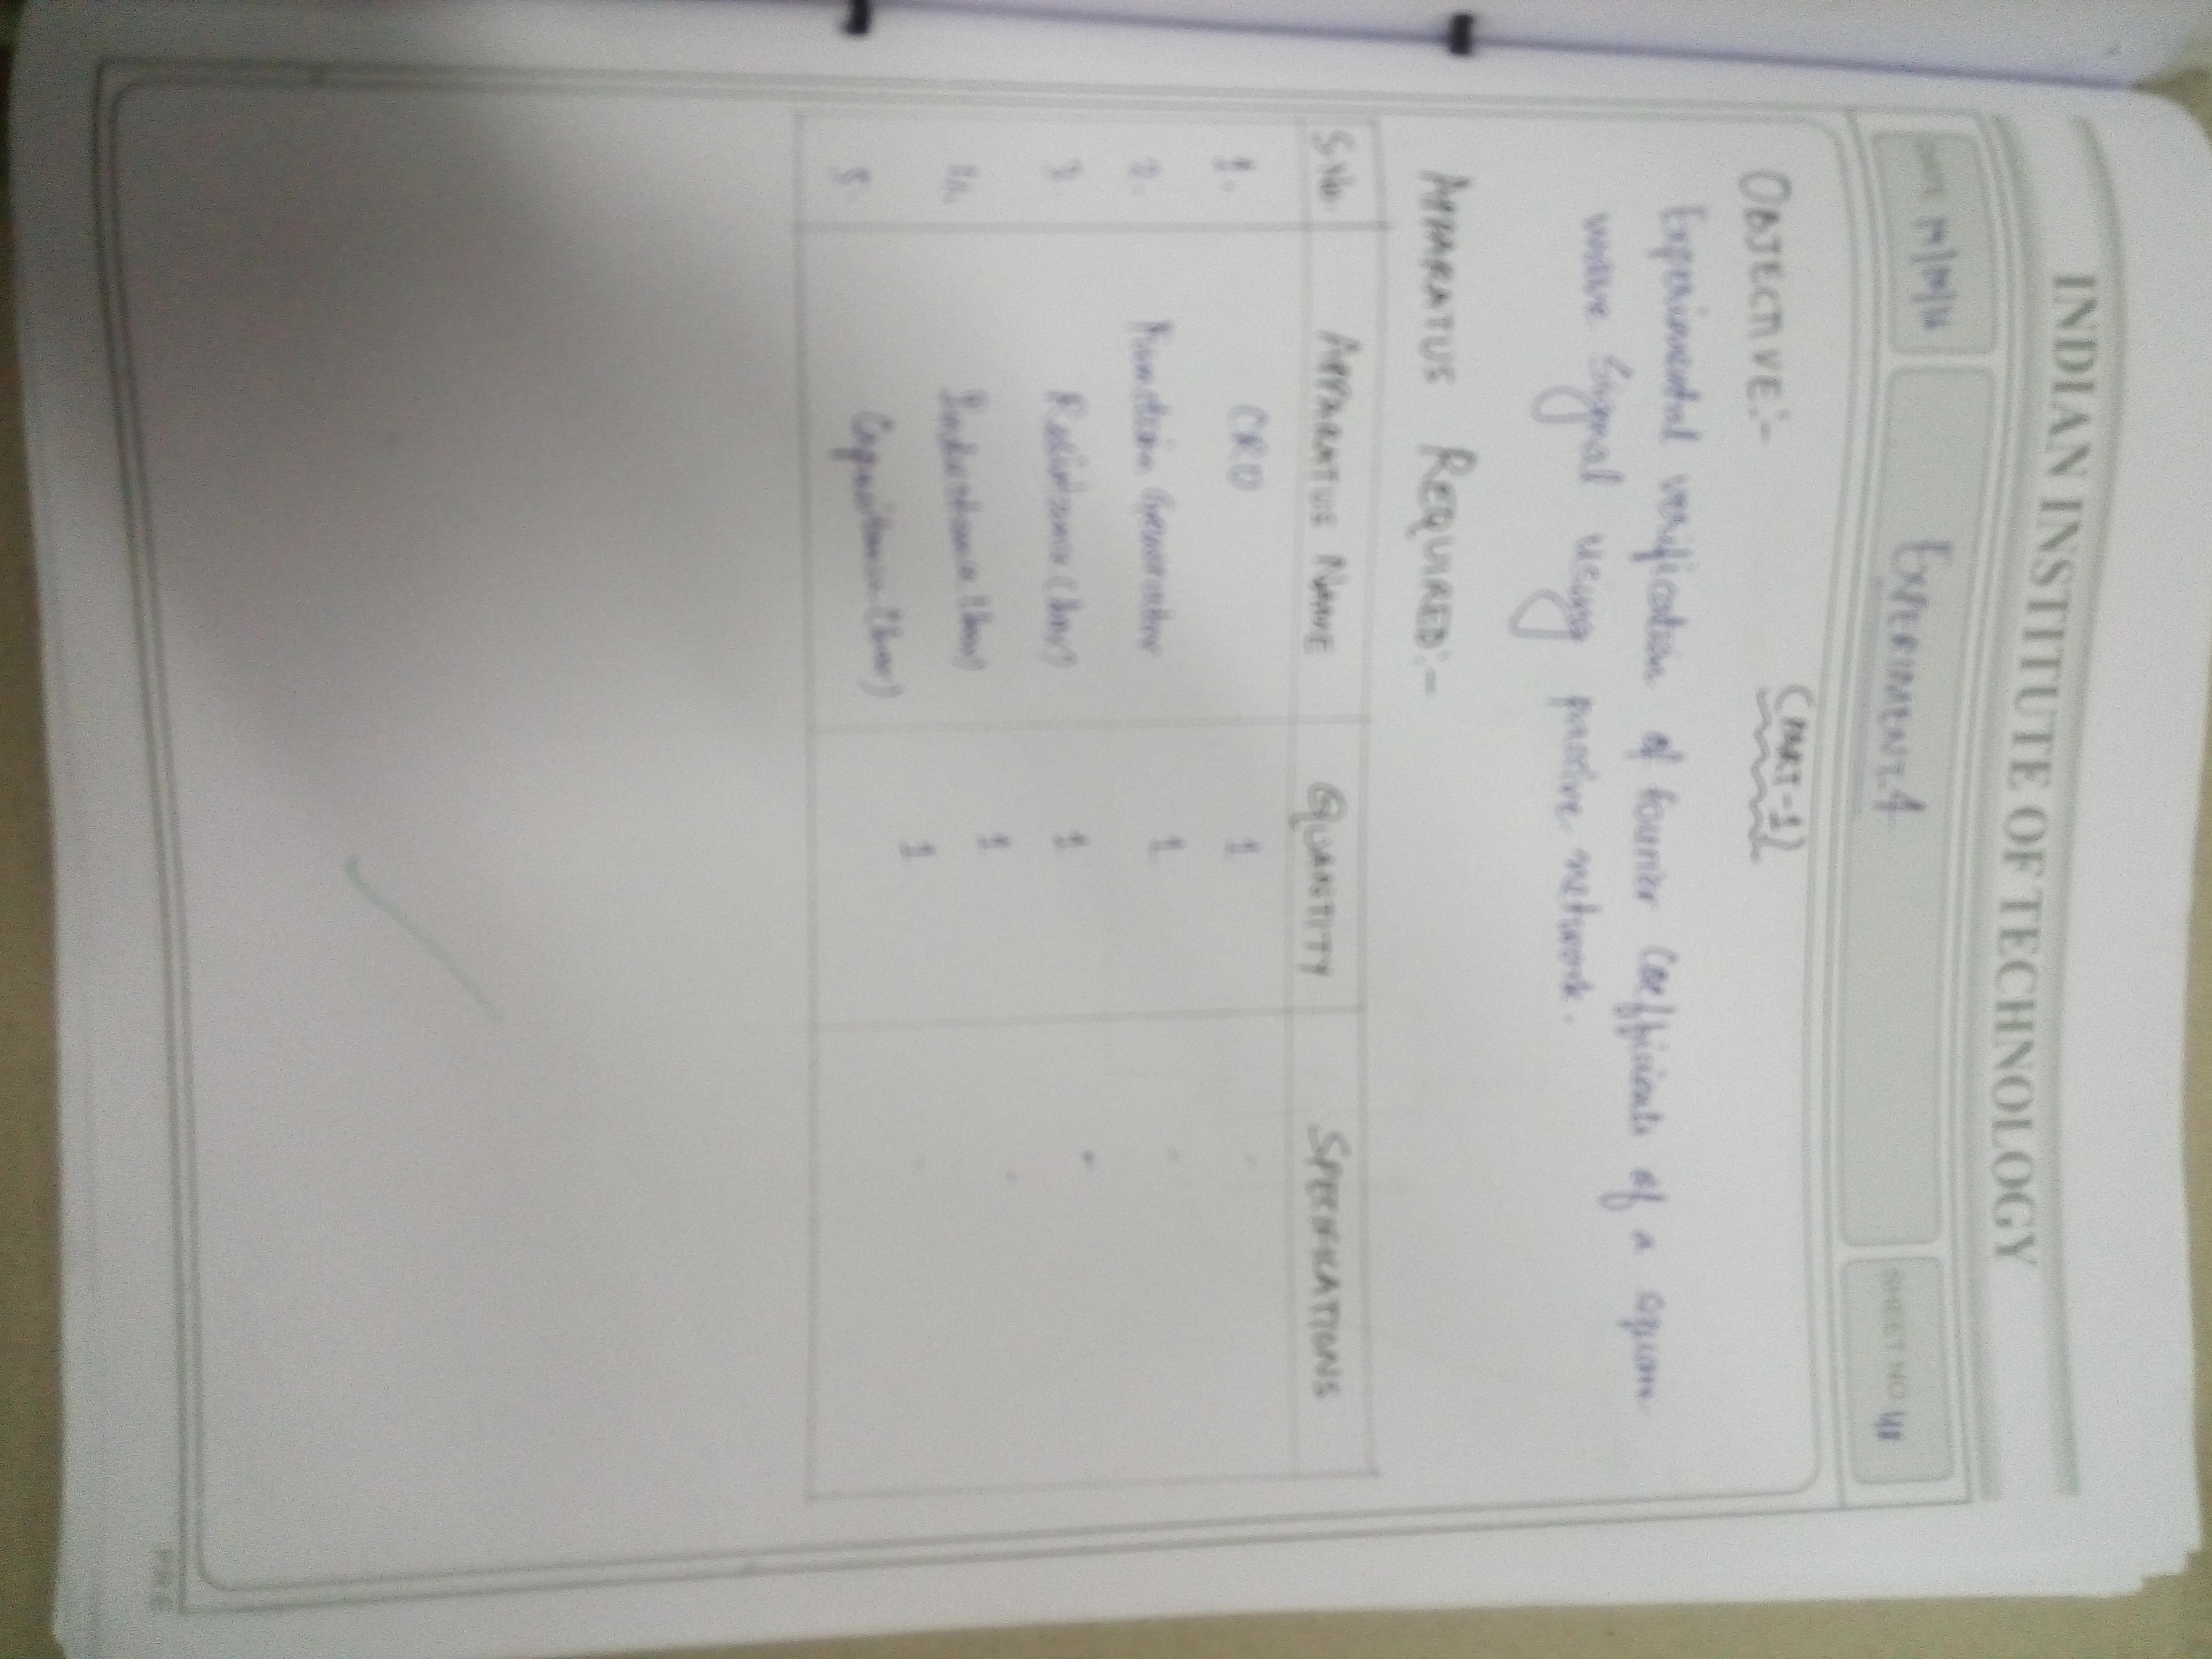 INDIAN INSTITUTE OF TECHNOLOGY
DATE
EXPERIMENT-4
SHEET NO.
(PART-1)
OBJECTIVE:-
Experimental verification of fourier Coefficients of a square
wave Signal using passive network.
APPARATUS REQUIRED:-
S.No. APPARATUS NAME QUANTITY SPECIFICATIONS
1. CRO 1 -
2. Function Generator 1 -
3. Resistance (box) 1 -
4. Inductance (box) 1 -
5. Capacitance (box) 1 -